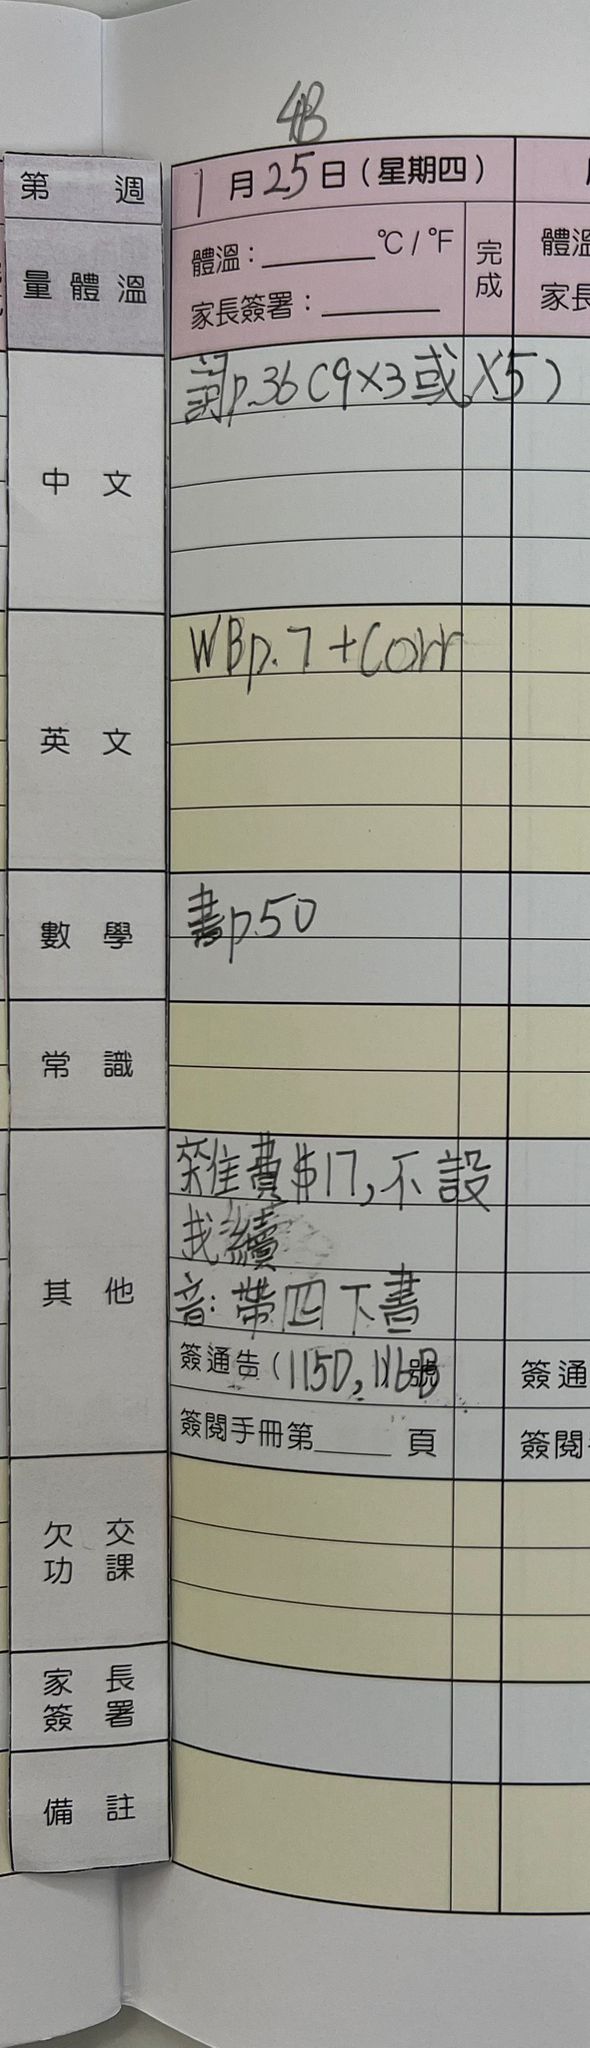 4B
第 週
1月25日(星期四)
量體溫
體溫：______℃/℉
完成
體溫
家長簽署：______
家長
中文
詞p.36(9×3或×5)
英文
WBp.7+Corr
數學
書p.50
常識
其他
雜費$17,不設
找續
音:帶四下書
簽通告(115D,116B號
簽通
簽閱手冊第____頁
簽閱
欠交功課
家長簽署
備註